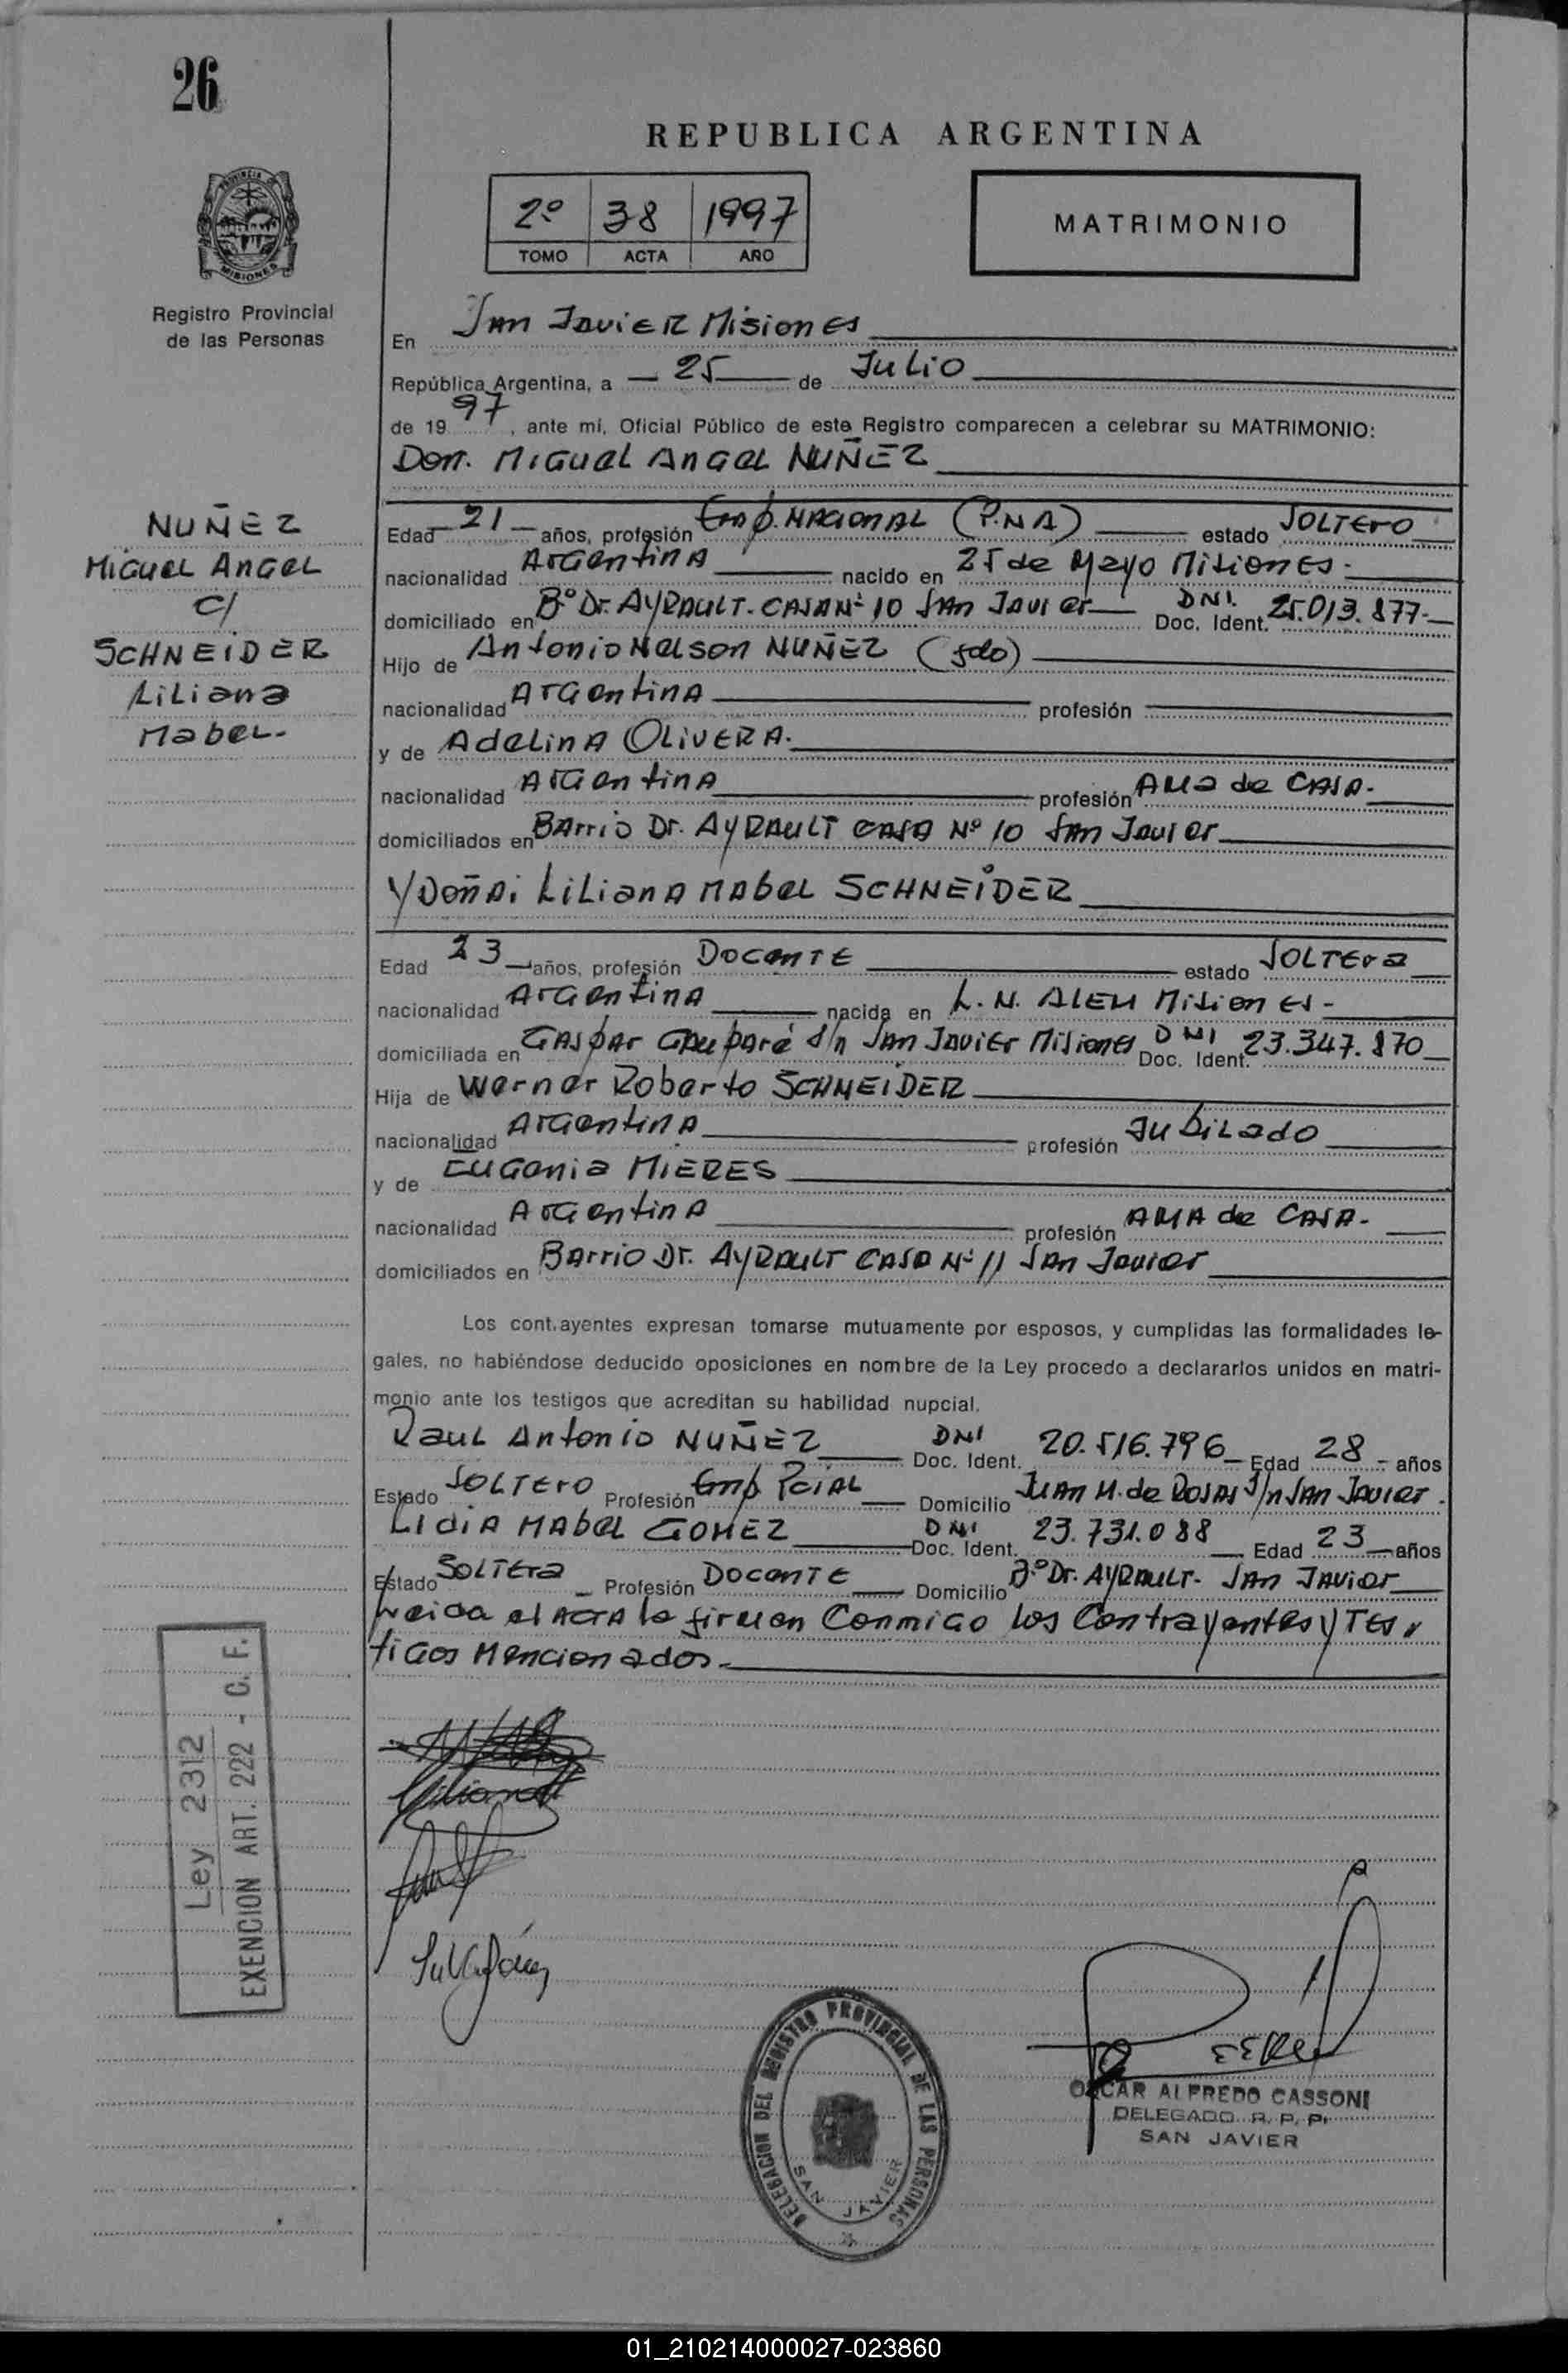 26
REPUBLICA ARGENTINA
2º 38 1997
TOMO ACTA AÑO
MATRIMONIO
PROVINCIA DE
MISIONES
Registro Provincial
de las Personas
En San Javier Misiones
República Argentina, a 25 de Julio
de 19 97, ante mí, Oficial Público de este Registro comparecen a celebrar su MATRIMONIO:
Don. Miguel Angel NUÑEZ
NUÑEZ
Miguel Angel
C/
SCHNEIDER
Liliana
Mabel.-
Edad 21 años, profesión Emp. Nacional (P.N.A) estado Soltero
nacionalidad Argentina nacido en 25 de Mayo Misiones.-
domiciliado en Bº Dr. Ayrault. Casa Nº 10 San Javier Doc. Ident. DNI. 25.013.877.-
Hijo de Antonio Nelson NUÑEZ (fdo)
nacionalidad Argentina profesión
y de Adelina OLIVERA.
nacionalidad Argentina profesión Ama de Casa.
domiciliados en Barrio Dr. Ayrault Casa Nº 10 San Javier
Y Doña: Liliana Mabel SCHNEIDER
Edad 23 años, profesión Docente estado Soltera
nacionalidad Argentina nacida en L. N. Alem Misiones-
domiciliada en Gaspar s/n San Javier Misiones Doc. Ident. DNI 23.347.870
Hija de Werner Roberto SCHNEIDER
nacionalidad Argentina profesión Jubilado
y de Eugenia MIERES
nacionalidad Argentina profesión Ama de Casa.
domiciliados en Barrio Dr. Ayrault Casa Nº 11 San Javier
Los contrayentes expresan tomarse mutuamente por esposos, y cumplidas las formalidades le-
gales, no habiéndose deducido oposiciones en nombre de la Ley procedo a declararlos unidos en matri-
monio ante los testigos que acreditan su habilidad nupcial.
Raul Antonio NUÑEZ Doc. Ident. DNI 20.516.796 Edad 28 años
Estado Soltero Profesión Emp Pcial Domicilio Juan M. de Rosas s/n San Javier.
Lidia Mabel GOMEZ Doc. Ident. DNI 23.731.088 Edad 23 años
Estado Soltera Profesión Docente Domicilio Bº Dr. Ayrault- San Javier
Leida el Acta la firman Conmigo los Contrayentes y Tes-
tigos Mencionados.-
Ley 2312
EXENCION ART. 222 - C. F.
DELEGACION DEL REGISTRO PROVINCIAL DE LAS PERSONAS
SAN JAVIER
OSCAR ALFREDO CASSONI
DELEGADO R. P. P.
SAN JAVIER
01_210214000027-023860